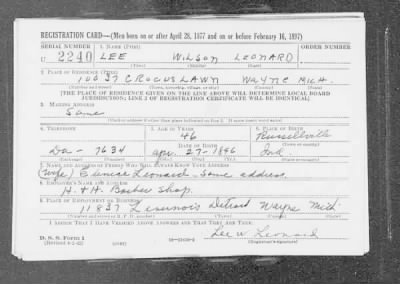 REGISTRATION CARD—(Men born on or after April 28, 1877 and on or before February 16, 1897)
SERIAL NUMBER 1. NAME (Print) ORDER NUMBER
U 2240 LEE WILSON LEONARD
2. PLACE OF RESIDENCE (Print)
10037 CROCUSLAWN WAYNE MICH.
[THE PLACE OF RESIDENCE GIVEN ON THE LINE ABOVE WILL DETERMINE LOCAL BOARD
JURISDICTION; LINE 2 OF REGISTRATION CERTIFICATE WILL BE IDENTICAL]
3. MAILING ADDRESS
Same
4. TELEPHONE 5. AGE IN YEARS 6. PLACE OF BIRTH
46 Russellville
DATE OF BIRTH (Town or county)
Da- 7634 Apr. 27-1896 Ind.
(Exchange) (Number) (Mo.) (Day) (Yr.) (State or country)
7. NAME AND ADDRESS OF PERSON WHO WILL ALWAYS KNOW YOUR ADDRESS
(Wife) Eunice Leonard - Same address.
8. EMPLOYER'S NAME AND ADDRESS
H. & H. Barber Shop.
9. PLACE OF EMPLOYMENT OR BUSINESS
11837 Livernois Detroit Wayne Mich.
I AFFIRM THAT I HAVE VERIFIED ABOVE ANSWERS AND THAT THEY ARE TRUE.
D. S. S. Form 1 Lee W Leonard
(Revised 4-1-42) (over) (Registrant's signature)